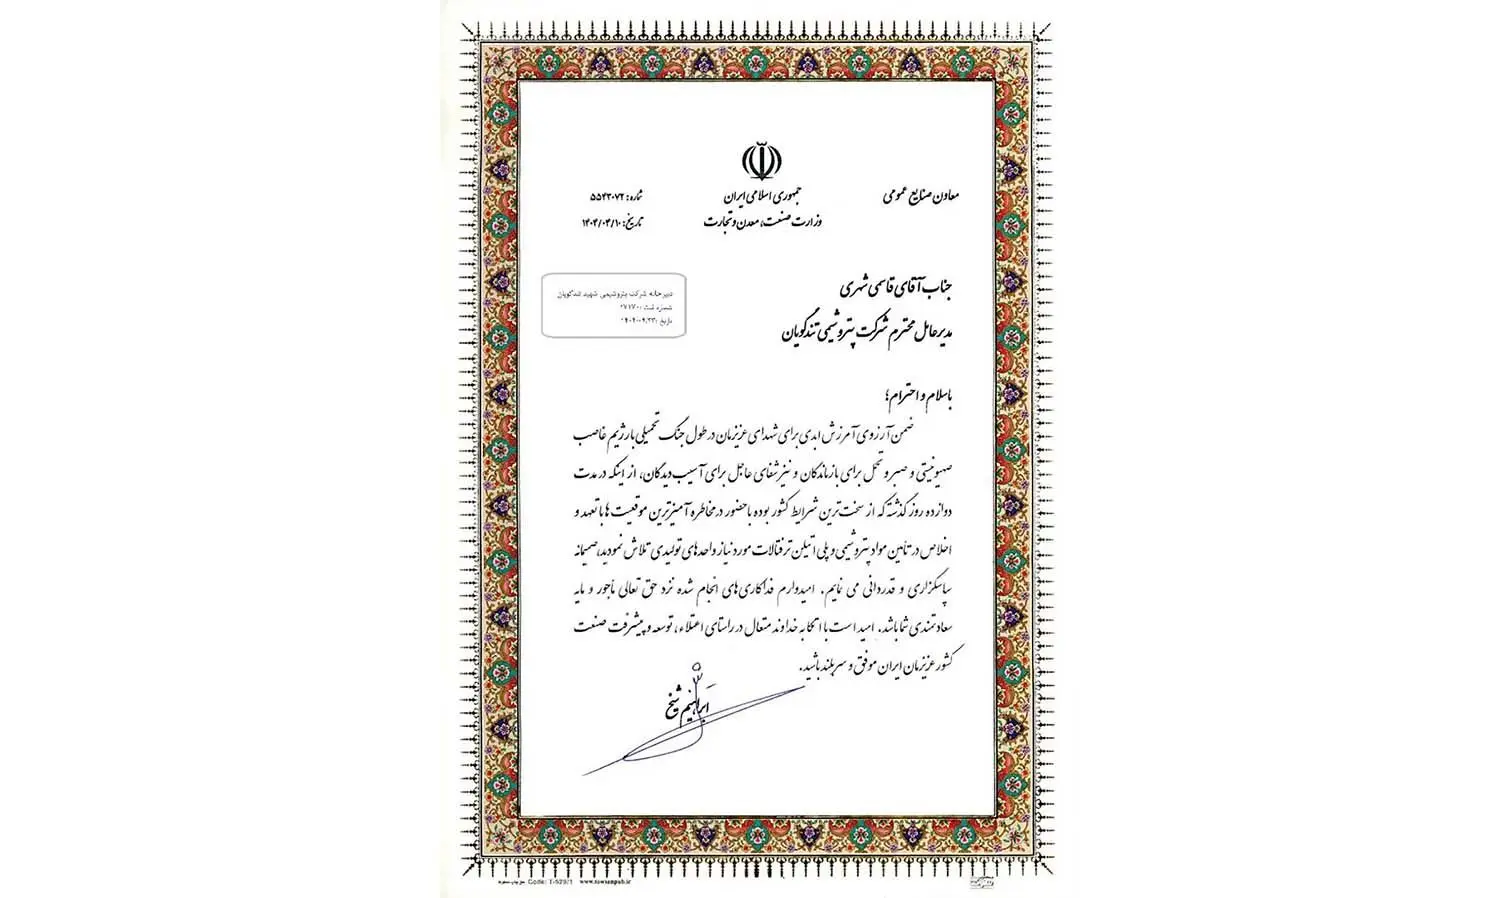 معاون صنایع عمومی
جمهوری اسلامی ایران
وزارت صنعت، معدن و تجارت
شماره: ۵۵۴۳۰۷۲
تاریخ: ۱۴۰۴/۰۴/۱۰
دبیرخانه شرکت پتروشیمی شهید تندگویان
شماره ثبت:
تاریخ:
جناب آقای قاسمی شهری
مدیرعامل محترم شرکت پتروشیمی تندگویان
باسلام و احترام؛
ضمن آرزوی آمرزش ابدی برای شهدای عزیزمان در طول جنگ تحمیلی با رژیم غاصب
صهیونیستی و صبر و تحمل برای بازماندگان و نیز شفای عاجل برای آسیب‌دیدگان، از اینکه در مدت
دوازده روز گذشته که از سخت‌ترین شرایط کشور بوده با حضور در مخاطره آمیزترین موقعیت ها با تعهد و
اخلاص در تأمین مواد پتروشیمی و پلی اتیلن ترفتالات مورد نیاز واحدهای تولیدی تلاش نمودید، صمیمانه
سپاسگزاری و قدردانی می نمایم. امیدوارم فداکاری‌های انجام شده نزد حق تعالی مأجور و مایه
سعادتمندی شما باشد. امید است با اتکا به خداوند متعال در راستای اعتلاء، توسعه و پیشرفت صنعت
کشور عزیزمان ایران موفق و سربلند باشید.
ابراهیم شیخ
Code: T-529/1 www.rowzanpub.ir